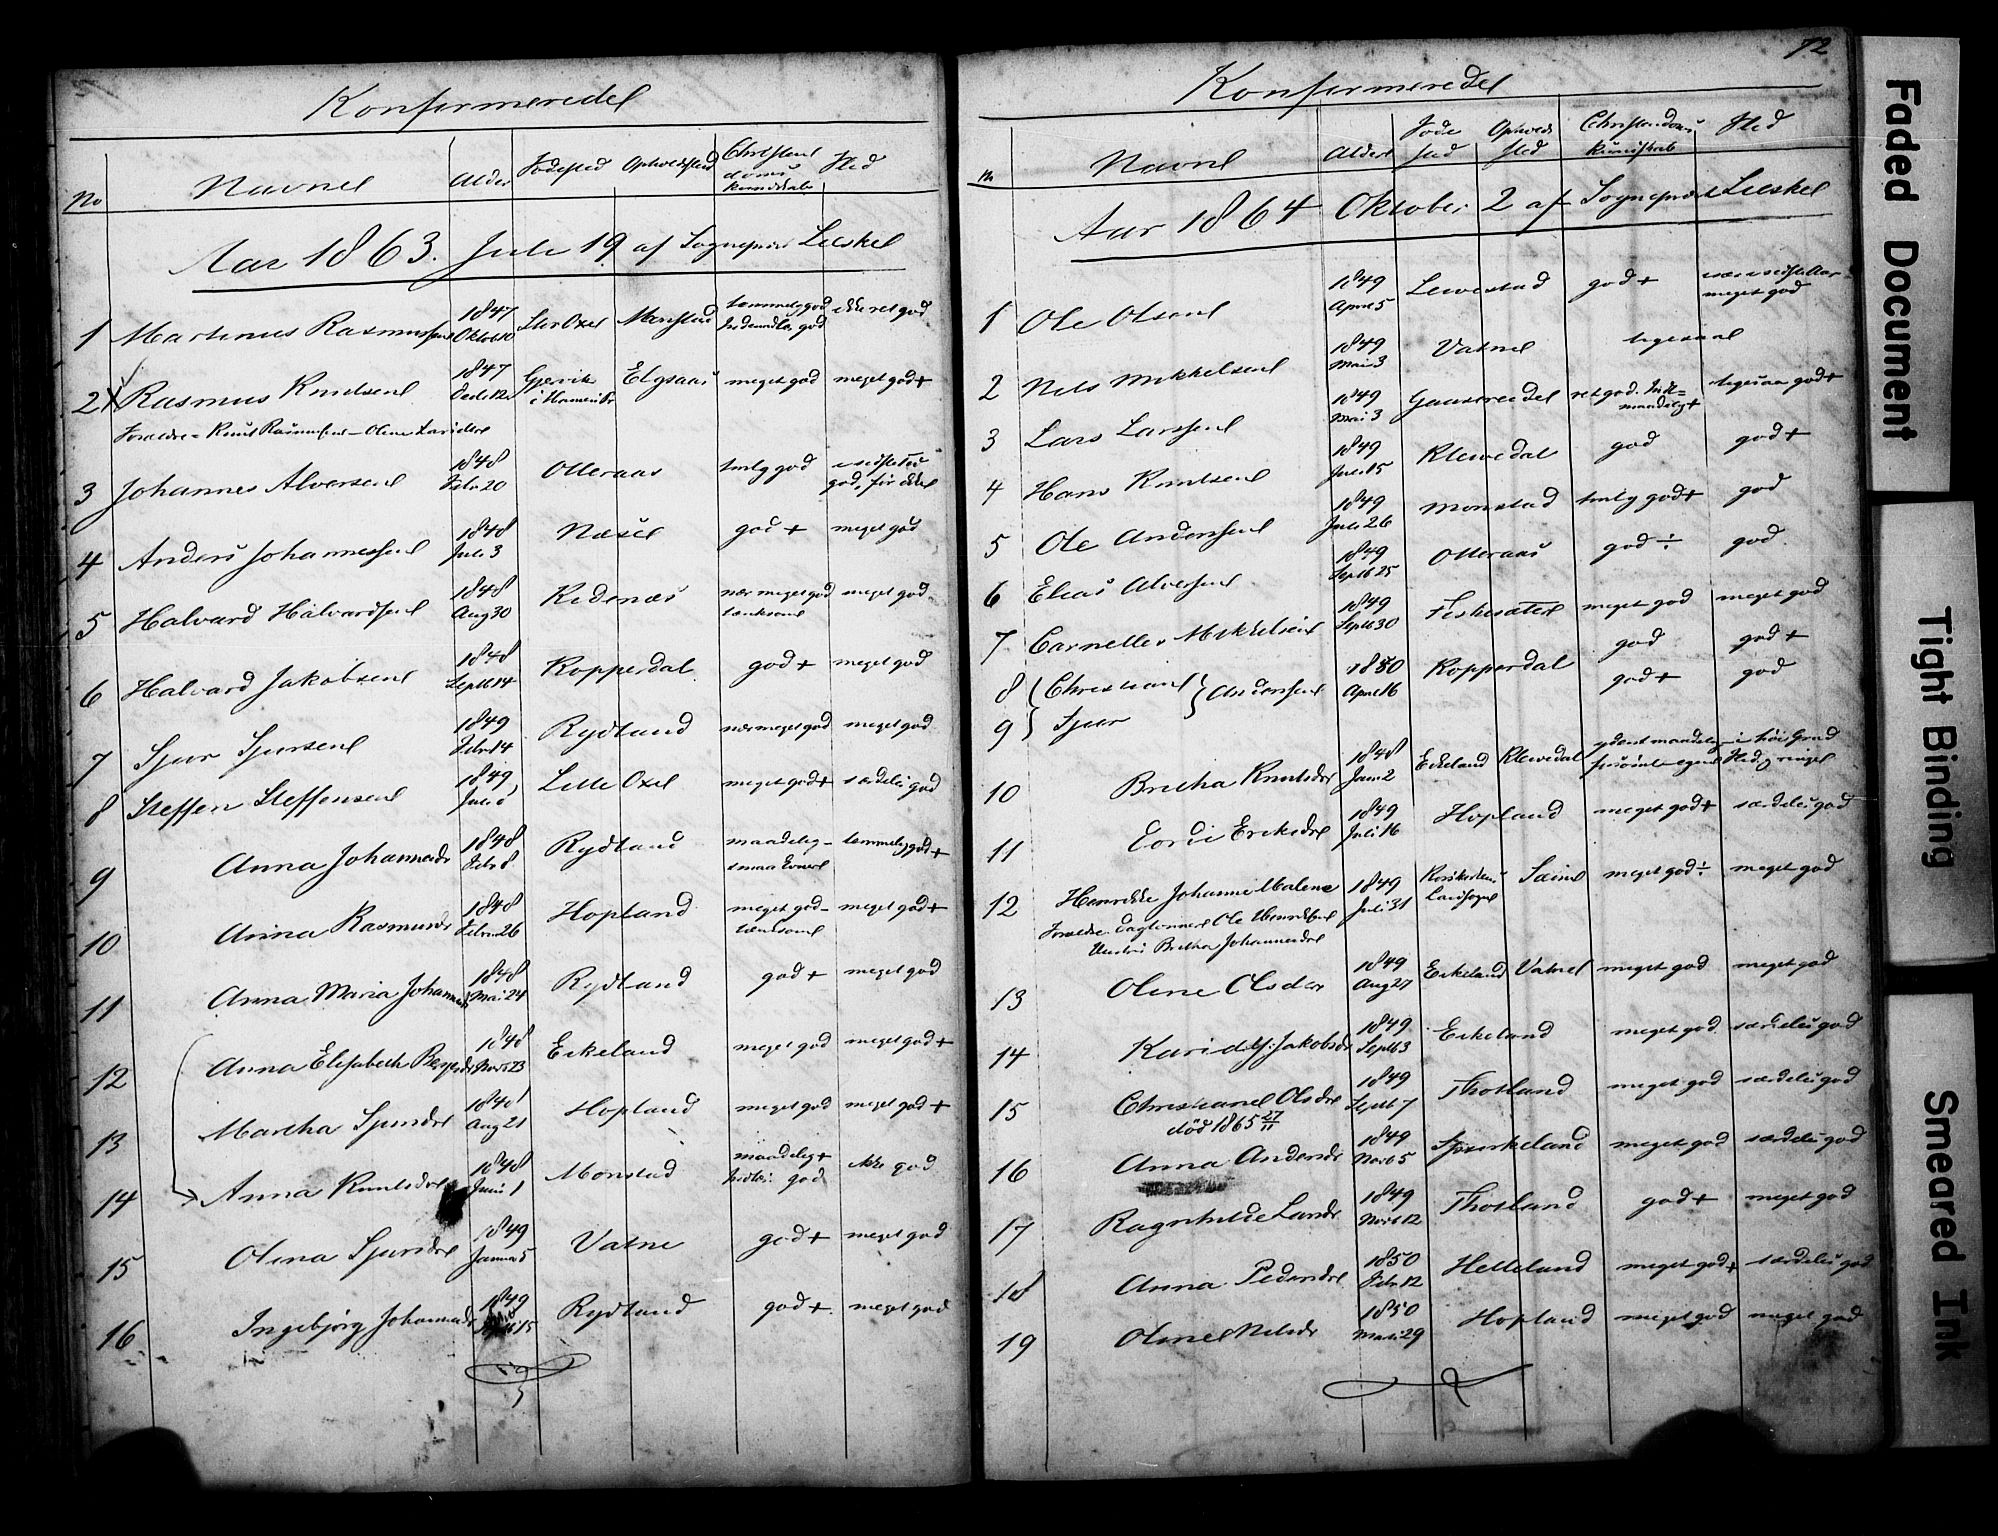 Konfirmerede
No Navne Alder Fødested Opholdssted Christendoms kundskab Flid
Aar 1863. Juli 19 af Sognepræst
1 Martinus Rasmussen 1847 Oktob 10 Store Oxe Monstad temmelig god ikke ret god
2 X Rasmus Knudsen 1847 Decb 12 Gjervik i Elgsaas meget god meget god +
Forældre = Knud Rasmussen - Oline
3 Johannes Alversen 1848 Febr 20 Otteraas tmlg god god, før ikke
4 Anders Johannessen 1848 Juli 3 Næsse god + meget god
5 Halvard Halvardsen 1848 Aug 30 Kidenæs nær meget god meget god
tænksom
6 Halvard Jakobsen 1848 Septb 14 Kopperdal god + meget god
7 Sjur Sjursen 1849 Febr 14 Rydland nær meget god meget god
8 Steffen Steffensen 1849 Juli 8 Lille Oxe meget god + særdeles god
9 Anna Johannesdr 1848 Febr 8 Rydland maadelig - temmelig god +
smaa Evner
10 Anna Rasmusdr 1848 Febr 26 Hopland meget god - meget god +
tænksom
11 Anna Maria Johannesdr 1848 Mai 24 Rydland god + meget god
12 Anna Elisabeth 1848 Novb 23 Eikeland meget god meget god +
13 Martha Sjursdr 1848 Aug 21 Hopland meget god meget god +
14 Anna Knudsdr 1848 Juni 1 Monstad maadelig + god ikke god
15 Olina Sjursdr 1849 Januar 5 Vatne god + meget god
16 Ingebjørg Johannesdr 1849 15 Rydland god + meget god
72
Konfirmerede
No Navne Alder Fødested Opholdssted Christendoms kundskab Flid
Aar 1864 Oktober 2 af Sognepræst
1 Ole Olsen 1849 April 5 god + meget god
2 Nils Mikkelsen 1849 Mai 3 Vatne ligesaa
3 Lars Larssen 1849 Mai 3 ret god. ligesaa god +
4 Hans Knudsen 1849 Juli 15 Klevedal god god +
5 Ole Anderssen 1849 Juli 26 Monstad tmlg god + god
6 Elias Alversen 1849 Septb 25 Otteraas god ÷ god
7 Carnelius Mikkelsen 1849 Septb 30 Fiskesæter meget god meget god
8 Christian } Anderssen 1850 April 16 Kopperdal god god +
9 Sjur god + god
10 Brithe Knudsdr 1848 Jan 2 Eikeland Klevedal i høi Grad
Flid ringe
11 Cordi Eriksdr 1849 Juli 16 Hopland meget god + særdeles god
12 Henrikke Johanne Malene 1849 Juli 31 Korskirkens Landsogn Sæim meget god ÷ meget god
Forældre: Daglønner Ole
Hustru Brithe Johannesdr
13 Oline Olsdr 1849 Aug 27 Eikeland Vatne meget god meget god
14 Kari Jakobsdr 1849 Septb 3 Eikeland meget god særdeles god
15 Christiane Olsdr 1849 Septb 7 Thotland meget god særdeles god
død 1865 27/11
16 Anna Andersdr 1849 Novb 5 Spurkeland meget god særdeles god
17 Ragnhilde Larsdr 1849 Novb 12 Thotland god + meget god
18 Anna Pedersdr 1850 Febr 12 Helleland meget god + særdeles god
19 Oline Nilsdr 1850 Mars 29 Hopland meget god meget god
Faded Document
Tight Binding
Smeared Ink